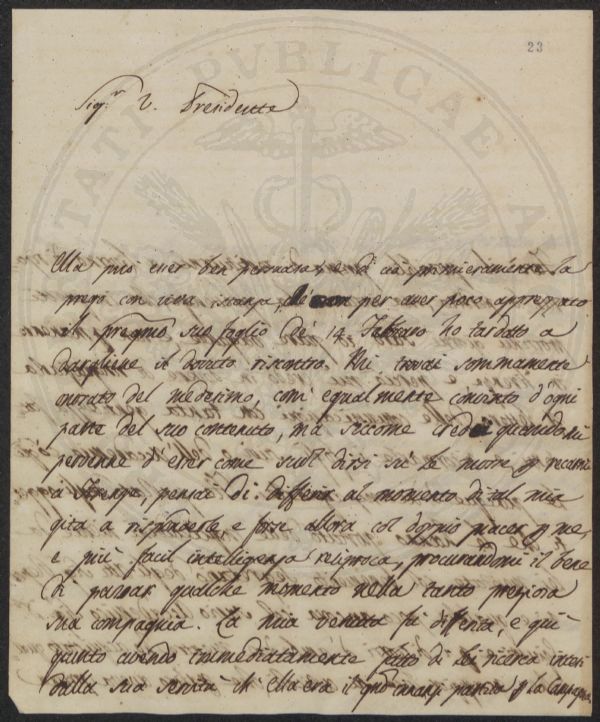 23
Sig.r V. Presidente
Ella può esser ben persuasa, e di ciò primieramente la
prego con viva istanza, che non per aver poco apprezzato
il pregmo suo foglio de' 14 Febraro ho tardato a
dargliene il dovuto riscontro. Mi trovai sommamente
onorato del medesimo, com' equalmente convinto d'ogni
parte del suo contenuto, ma siccome credei quando mi
pervenne d'esser come suol dirsi su le mosse p recarmi
a Firenze, pensai di differir al momento di tal mia
gita a risponderle e forse allora col doppio piacer p me,
e più facil intelligenza reciproca, procurandomi il bene
di passar qualche momento nella tanto preziosa
sua compagnia. La mia venuta fu differita, e quì
giunto avendo immediatamente fatto di Lei ricerca intesi
dalla sua servitù ch'ella era il gno innanzi partita p la Campagna
PUBLICAE